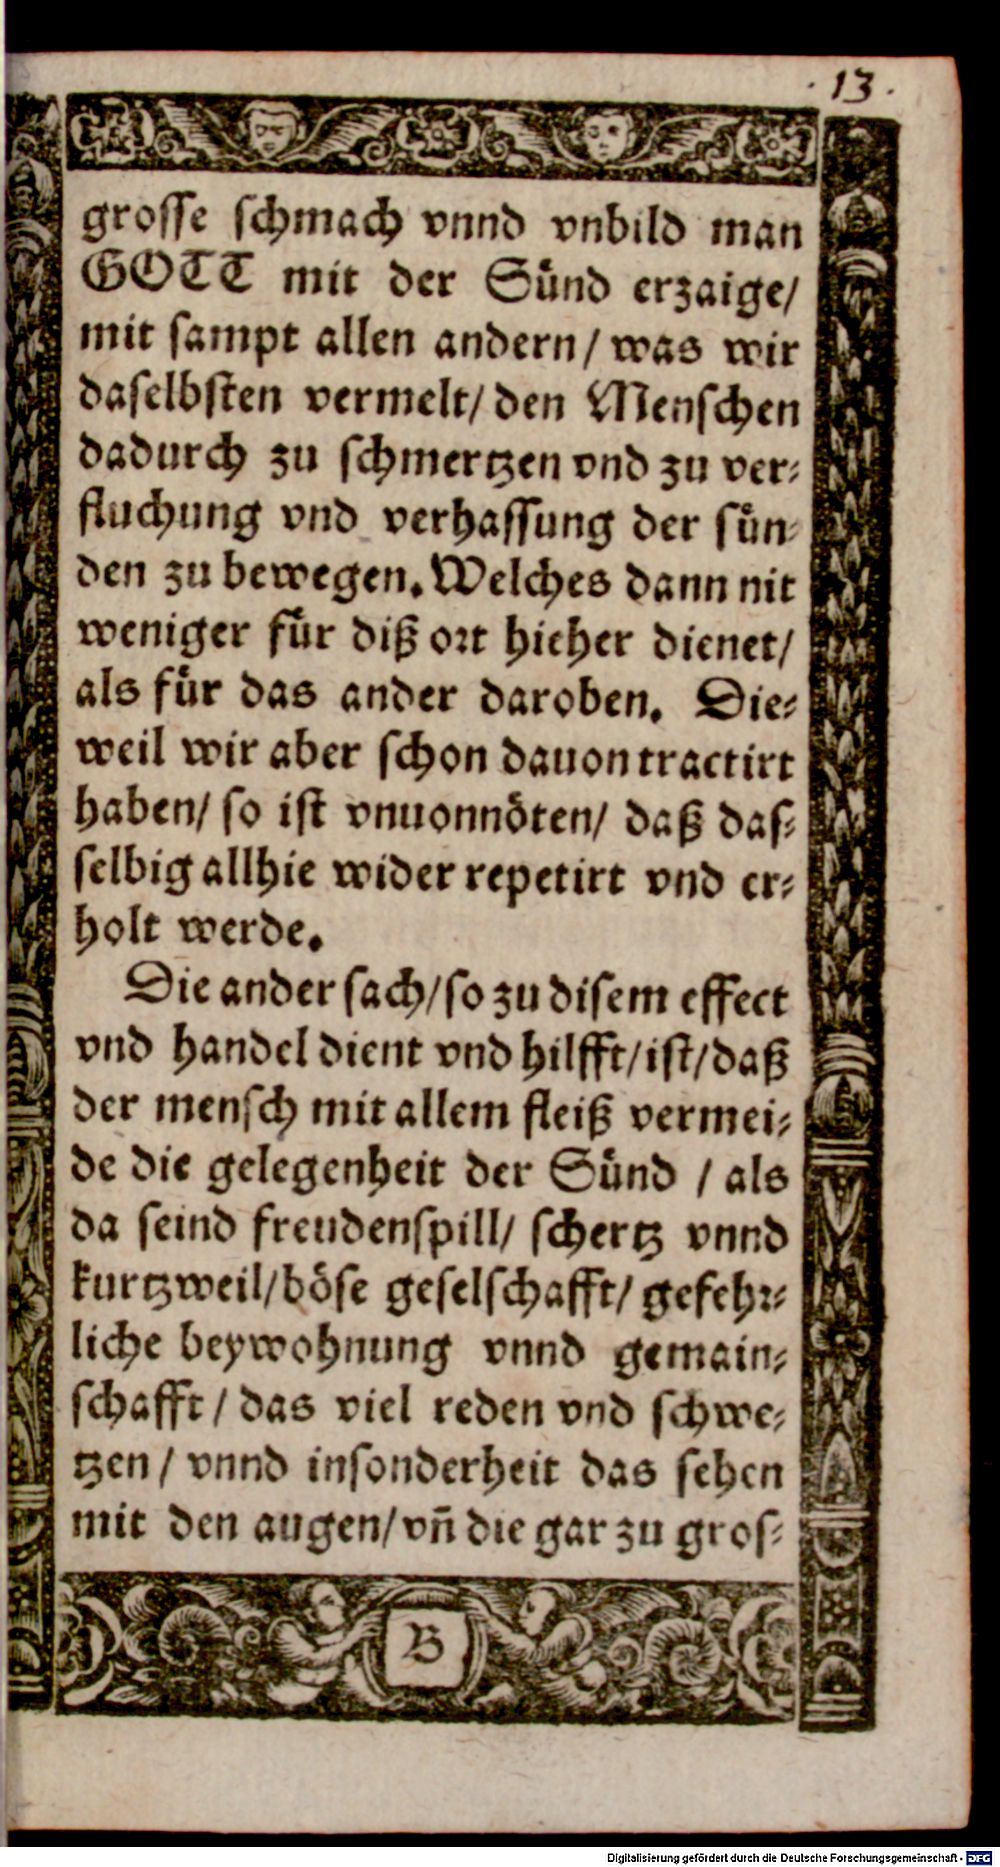 . 13 .
grosse schmach vnnd vnbild man
GOTT mit der Sünd erzaige/
mit sampt allen andern/ was wir
daselbsten vermelt/ den Menschen
dadurch zu schmertzen vnd zu ver-
fluchung vnd verhassung der sün-
den zu bewegen. Welches dann nit
weniger für diß ort hieher dienet/
als für das ander daroben. Die-
weil wir aber schon dauon tractirt
haben/ so ist vnuonnöten/ daß das-
selbig allhie wider repetirt vnd er-
holt werde.
Die ander sach/ so zu disem effect
vnd handel dient vnd hilfft/ ist/ daß
der mensch mit allem fleiß vermei-
de die gelegenheit der Sünd / als
da seind freudenspill/ schertz vnnd
kurtzweil/ böse geselschafft/ gefehr-
liche beywohnung vnnd gemain-
schafft / das viel reden vnd schwe-
tzen / vnnd insonderheit das sehen
mit den augen/ vn̄ die gar zu gros-
B
Digitalisierung gefördert durch die Deutsche Forschungsgemeinschaft - DFG